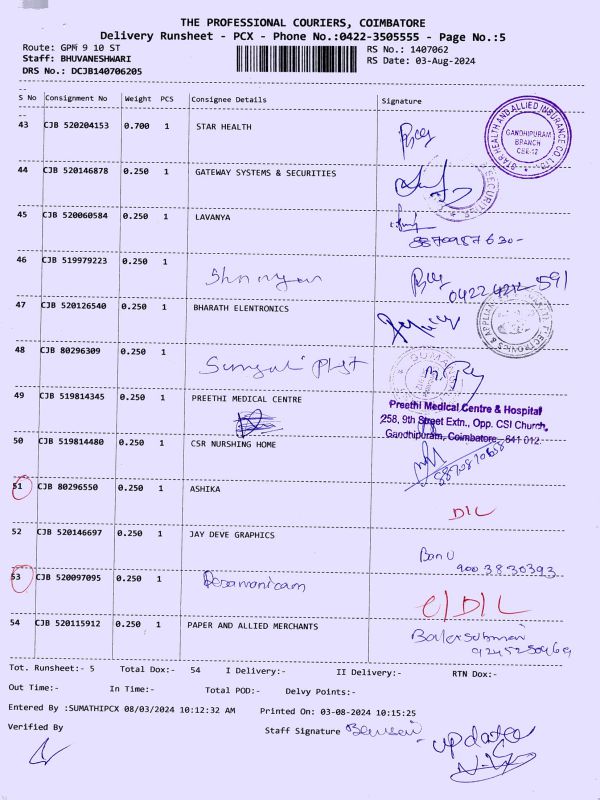 THE PROFESSIONAL COURIERS, COIMBATORE
Delivery Runsheet - PCX - Phone No.:0422-3505555 - Page No.:5
Route: GPM 9 10 ST
RS No.: 1407062
Staff: BHUVANESHWARI
RS Date: 03-Aug-2024
DRS No.: DCJB140706205
S No Consignment No Weight PCS Consignee Details Signature
43 CJB 520204153 0.700 1 STAR HEALTH
STAR HEALTH AND ALLIED INSURANCE CO LTD
GANDHIPURAM
BRANCH
CBE-12
44 CJB 520146878 0.250 1 GATEWAY SYSTEMS & SECURITIES
45 CJB 520060584 0.250 1 LAVANYA
8870987630-
46 CJB 519979223 0.250 1
0422 4212 591
47 CJB 520126540 0.250 1 BHARATH ELENTRONICS
48 CJB 80296309 0.250 1
49 CJB 519814345 0.250 1 PREETHI MEDICAL CENTRE
Preethi Medical Centre & Hospital
258, 9th Street Extn., Opp. CSI Church,
Gandhipuram, Coimbatore - 641 012.
50 CJB 519814480 0.250 1 CSR NURSHING HOME
51 CJB 80296550 0.250 1 ASHIKA
D/L
52 CJB 520146697 0.250 1 JAY DEVE GRAPHICS
Banu
9003830393
53 CJB 520097095 0.250 1
C/D/L
54 CJB 520115912 0.250 1 PAPER AND ALLIED MERCHANTS
Tot. Runsheet:- 5 Total Dox:- 54 I Delivery:- II Delivery:- RTN Dox:-
Out Time:- In Time:- Total POD:- Delvy Points:-
Entered By :SUMATHIPCX 08/03/2024 10:12:32 AM Printed On: 03-08-2024 10:15:25
Verified By
Staff Signature
update